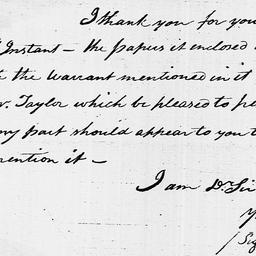 I thank you for you
Instant — the papers it enclosed
the warrant mentioned in it
Taylor which be pleased to pe
my part should appear to you t
mention it —
I am Dr Sir
Y
(Sig